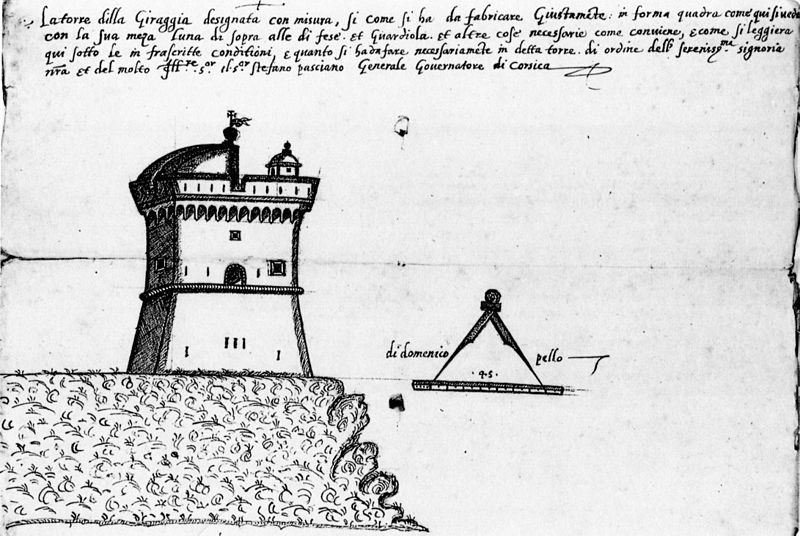 La torre dilla Giraggia designata con misura, si come si ha da fabricare Giustamẽte: in forma quadra come qui si vede
con la sua meza Luna di sopra alle di fese. et Guardiola. et altre cose necessarie come conviene, e come si leggiera
qui sotto le in frascritte conditioni, e quanto si ha da fare necessariamẽte in detta torre. di ordine dell
signoria
nr̃a et del molto Ill.re s.or il s.or stefano pasciano Generale Governatore di Corsica
di domenico pello
.45.